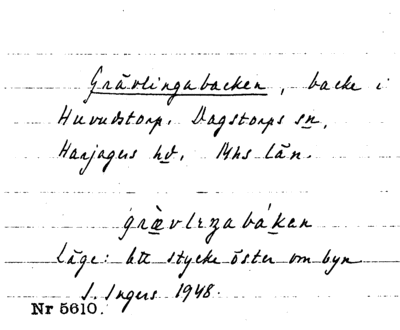 Grävlingabacken, backe i
Huvudstorp. Dagstorps sn,
Harjagers hd, Mhs län.
græ̀vlıŋabákən
Läge: Ett stycke öster om byn
I. Ingers 1948.
Nr 5610.